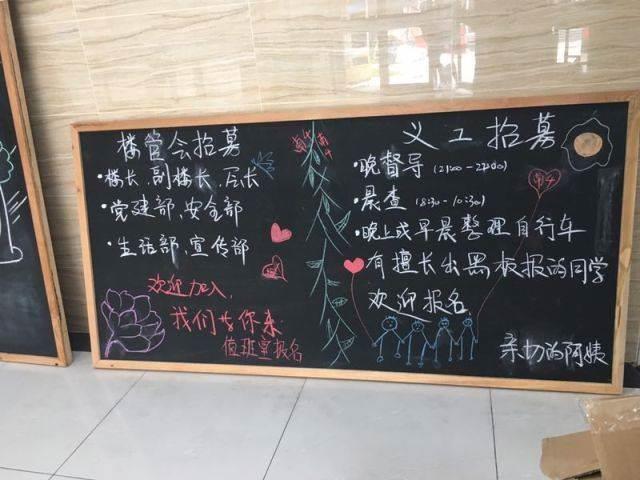 楼管会招募
·楼长、副楼长、层长
·党建部、安全部
·生活部、宣传部
欢迎加入,
我们等你来
值班室报名
南4
义工招募
·晚督导(21:00-22:00)
·晨查(8:30-10:30)
·晚上或早晨整理自行车
有擅长出黑板报的同学
欢迎报名
亲切的阿姨